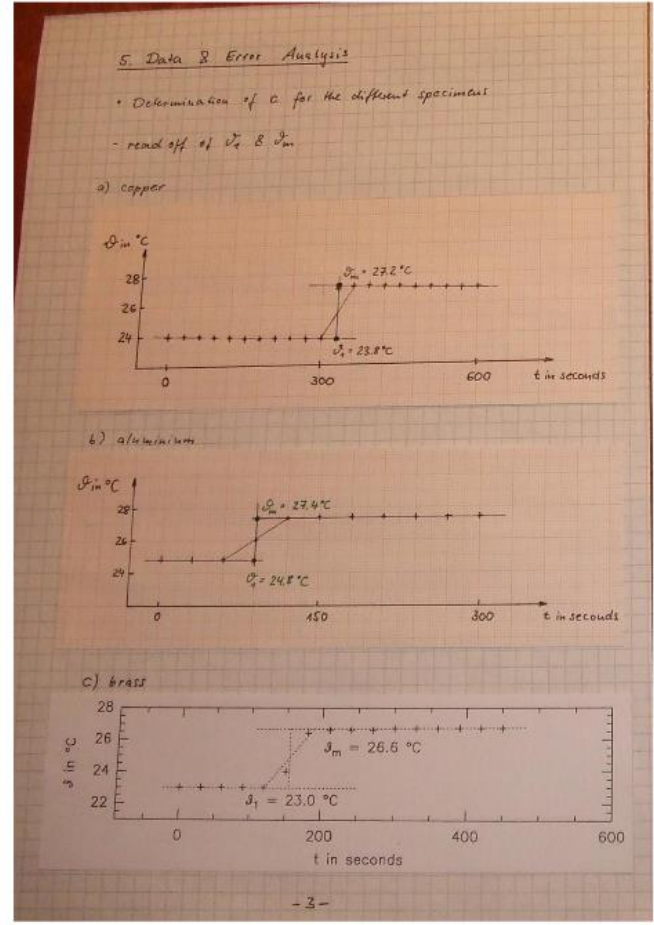 5. Data & Error Analysis
• Determination of c for the different specimens
- read off of ϑ₁ & ϑₘ
a) copper
ϑ in °C
28
26
24
ϑₘ = 27.2 °C
ϑ₁ = 23.8 °C
0 300 600 t in seconds
b) aluminium
ϑ in °C
28
26
24
ϑₘ = 27.4 °C
ϑ₁ = 24.8 °C
0 150 300 t in seconds
c) brass
28
26
24
22
ϑ in °C
ϑₘ = 26.6 °C
ϑ₁ = 23.0 °C
0 200 400 600
t in seconds
- 3 -